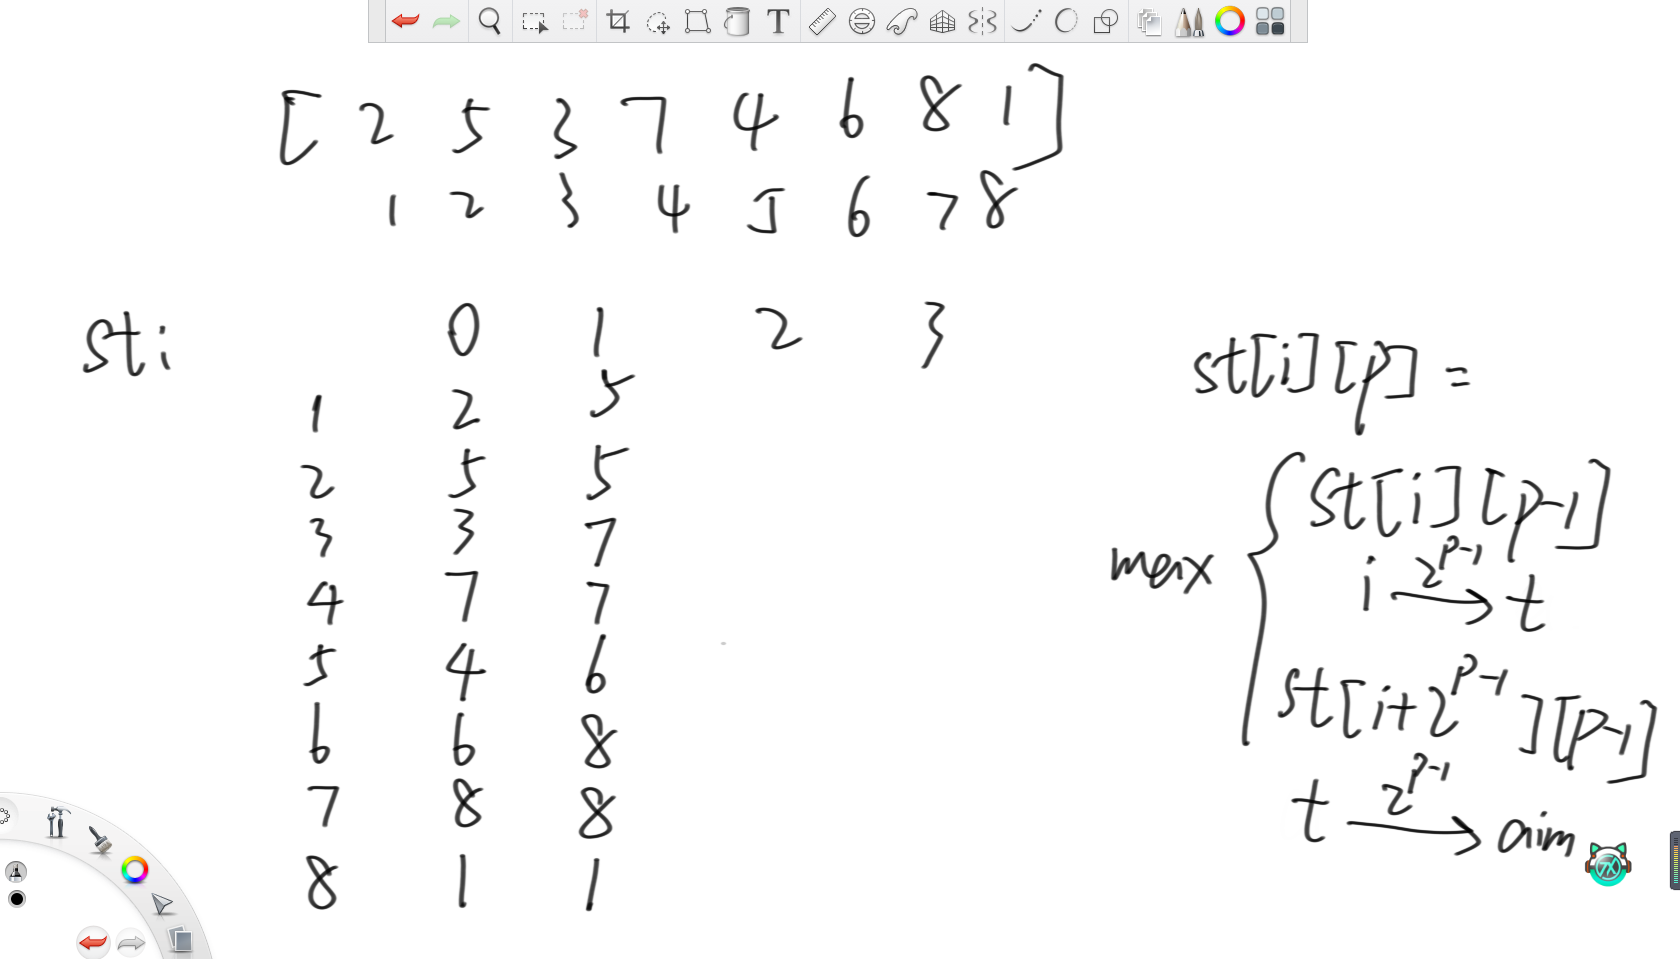 [2 5 3 7 4 6 8 1]
1 2 3 4 5 6 7 8
st i 0 1 2 3
1 2 5
2 5 5
3 3 7
4 7 7
5 4 6
6 6 8
7 8 8
8 1 1
st[i][p] =
max { st[i][p-1]
i 2^{p-1} → t
st[i+2^{p-1}][p-1]
t 2^{p-1} → aim
T